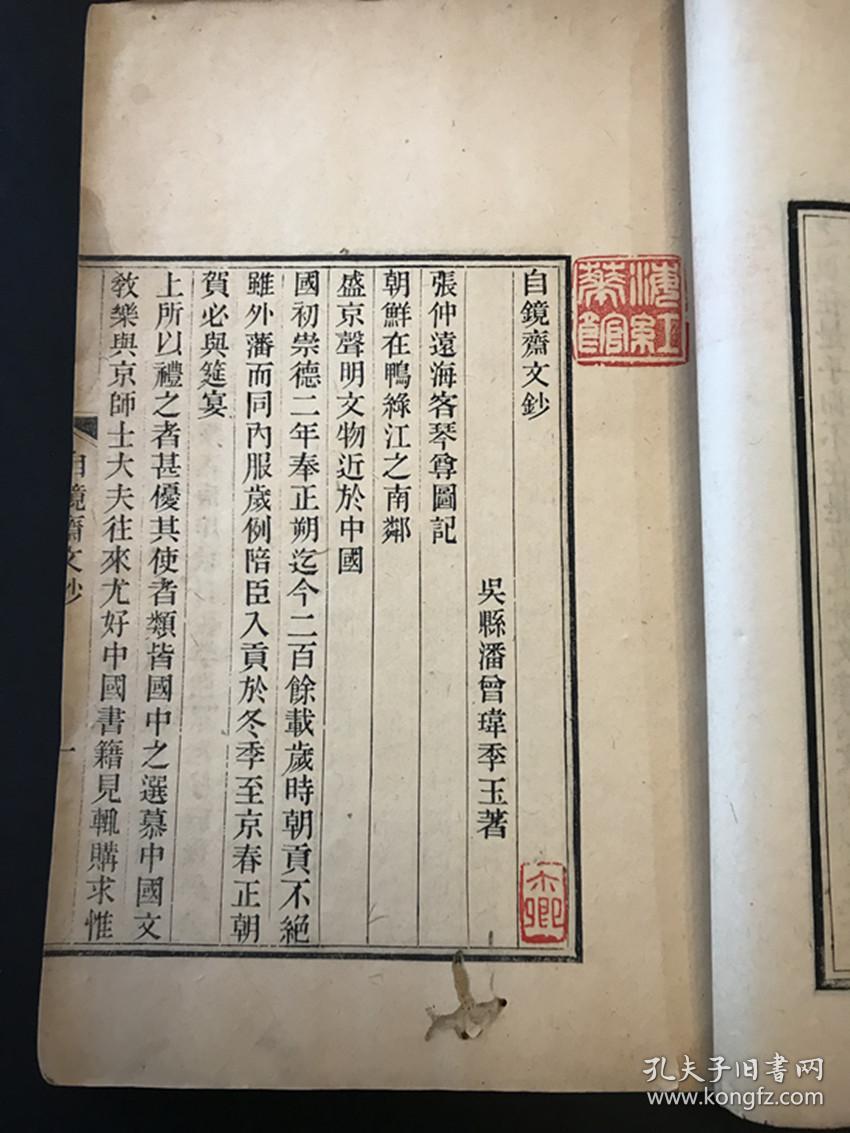 自鏡齋文鈔
吳縣潘曾瑋季玉著
張仲遠海客琴尊圖記
朝鮮在鴨綠江之南鄰
盛京聲明文物近於中國
國初崇德二年奉正朔迄今二百餘載歲時朝貢不絕
雖外藩而同內服歲例陪臣入貢於冬季至京春正朝
賀必與筵宴
上所以禮之者甚優其使者類皆國中之選慕中國文
敎樂與京師士大夫往來尤好中國書籍見輒購求惟
自鏡齋文鈔
一
孔夫子旧书网
www.kongfz.com